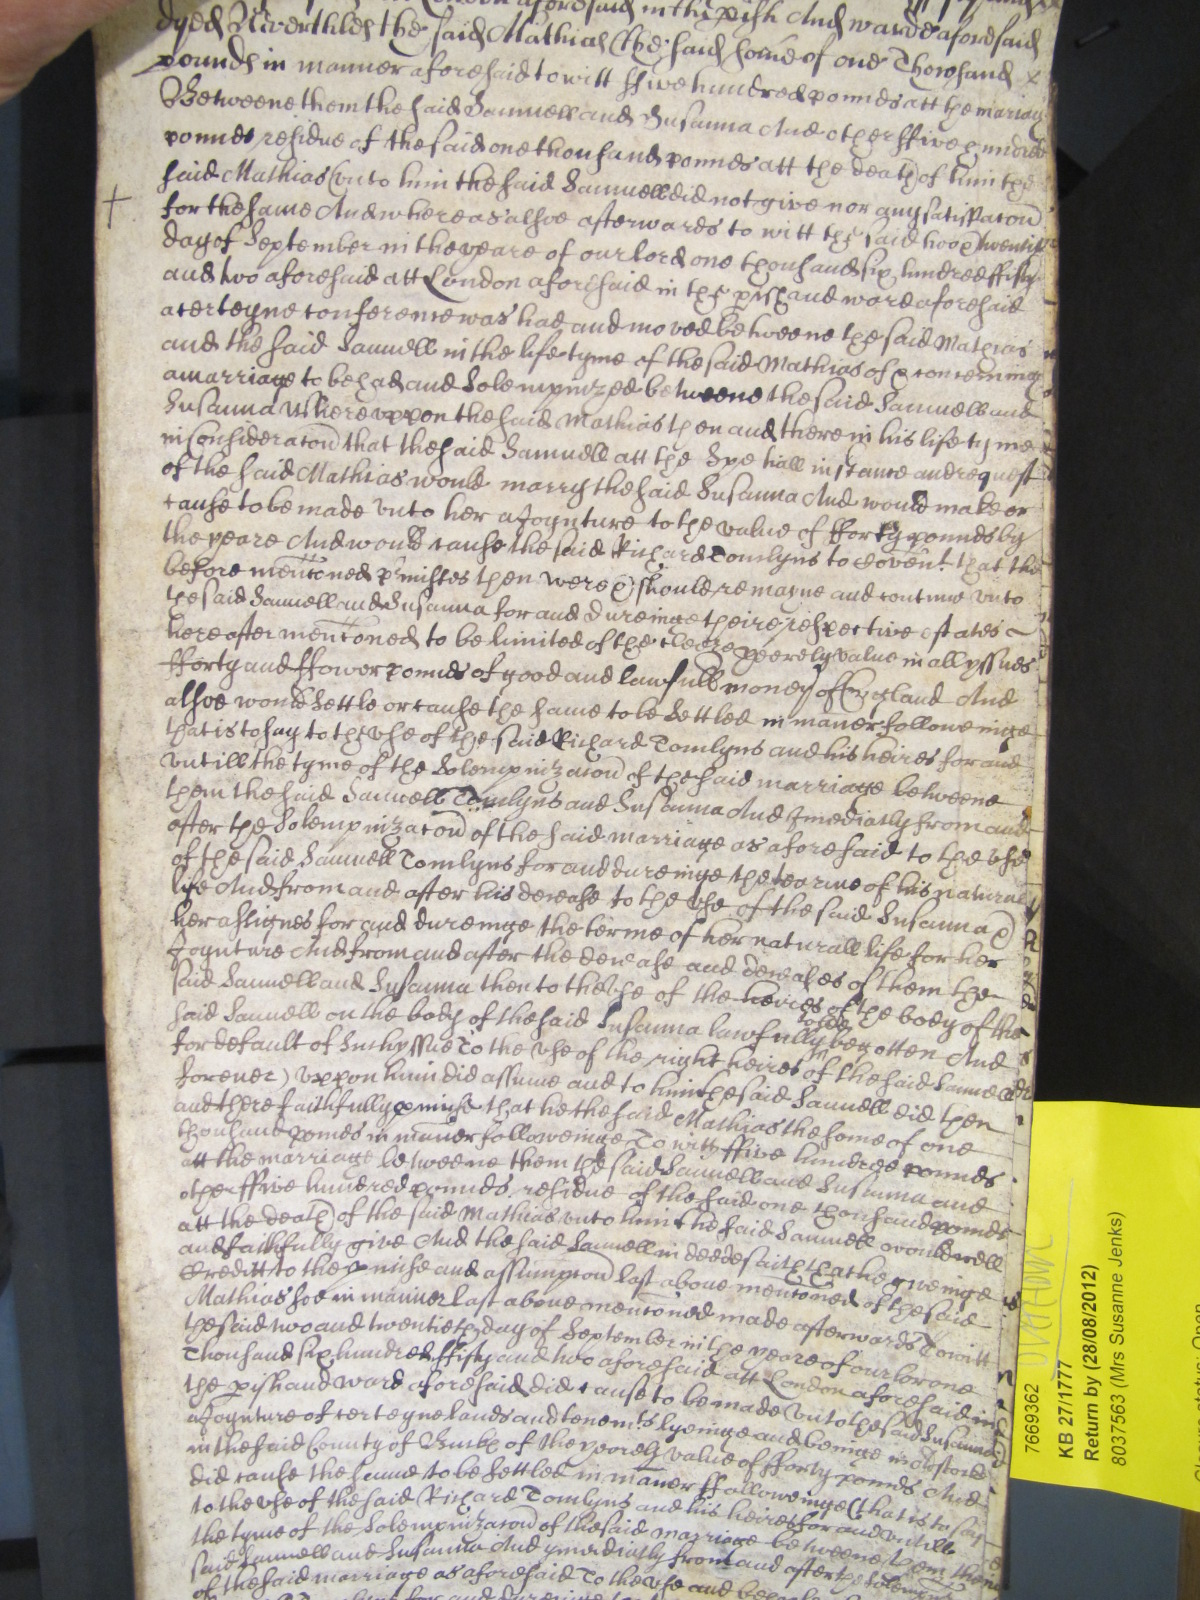 aforesaid in the pish And warde aforesaid
dyed Neverthles the said Mathias the said some of one Thowsand
pounds in manner aforesaid to witt ffive hundred pounds att the mariag
Betweene them the said Samuell and Susanna And other ffive hundred
pounds residue of the said one thousand pounds att the death of him the
said Mathias unto him the said Samuell did not give nor any satisfacon
for the same And whereas alsoe afterwards to witt the said two & twentith
day of September in the yeare of our lord one thousand six hundred fifty
and two aforesaid att London aforesaid in the pish and ward aforesaid
a certeyne conference was had and moved betweene the said Mathias
and the said Samuell in the life tyme of the said Mathias of & concerning
a marriage to be had and Solempnized betweene the said Samuell and
Susanna Whereuppon the said Mathias then and there in his life tyme
in consideracon that the said Samuell att the Speciall instance and request
of the said Mathias would marry the said Susanna And would make or
cause to be made unto her a Joynture to the value of fforty pounds by
the yeare And would cause the said Richard Tomlyns to covent that the
before menconed pmisses then were & should remayne and continue unto
the said Samuell and Susanna for and dureinge their respective estates
hereafter menconed to be limited of the cleere yeerely value in all yssues
fforty and ffower pounds of good and lawfull money of England And
alsoe would settle or cause the same to be settled in maner followeinge
that is to say to the use of the said Richard Tomlyns and his heires for and
untill the tyme of the Solempnizacon of the said marriage betweene
them the said Samuell Tomlyns and Susanna And Imediatly from and
after the Solempnizacon of the said marriage as aforesaid to the use
of the said Samuell Tomlyns for and dureinge the tearme of his naturall
life And from and after his decease to the use of the said Susanna &
her assignes for and dureinge the terme of her naturall life for her
Joynture And from and after the decease and deceases of them the
said Samuell and Susanna then to the use of the heires of the body of the
said Samuell on the body of the said Susanna lawfully to be begotten And
for default of such yssue To the use of the right heires of the said Samuell
forever) uppon him did assume and to him the said Samuell did then
and there faithfully pmise that he the said Mathias the some of one
thousand pounds in maner followeinge To witt ffive hundred pounds
att the marriage betweene them the said Samuell and Susanna and
other ffive hundred pounds residue of the said one thousand pounds
att the death of the said Mathias unto him the said Samuell would well
and faithfully give And the said Samuell in deede saith that he giveinge
Creditt to the pmise and assumpcon last above menconed of the said
Mathias soe in manner last above menconed made afterwards To witt
the said two and twentieth day of September in the yeare of our lord one
Thousand six hundred ffifty and two aforesaid att London aforesaid in
the pish and ward aforesaid did cause to be made unto the said Susanna
a Joynture of certeyne lands and tenemts lyeinge and beinge in
in the said County of of the yeerely value of fforty pounds And
did cause the same to be settled in maner ffolloweinge (that is to say
to the use of the said Richard Tomlyns and his heires for and untill
the tyme of the Solempnizacon of the said marriage betweene them the
said Samuell and Susanna And ymediatly from and after the Solempnizacon
of the said marriage as aforesaid To the use and
for and dureinge
7669362
KB 27/1777
Return by (28/08/2012)
8037563 (Mrs Susanne Jenks)
status: Open